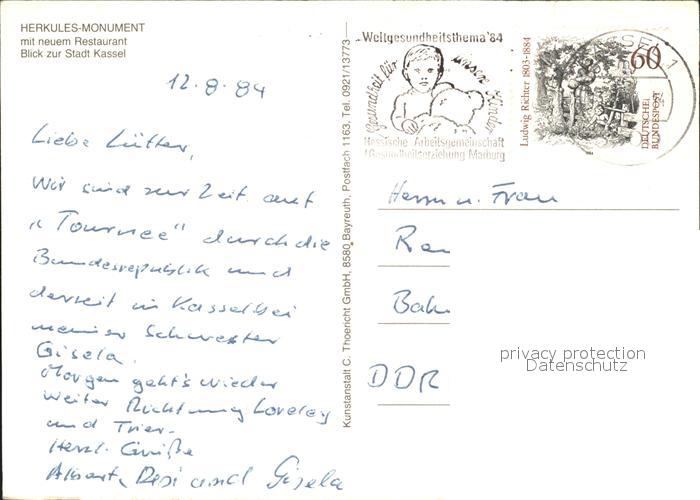 HERKULES-MONUMENT
mit neuem Restaurant
Blick zur Stadt Kassel
12.8.84
Liebe Lütter,
Wir sind zur Zeit auf
„Tournee" durch die
Bundesrepublik und
derzeit in Kassel bei
meiner Schwester
Gisela.
Morgen geht's wieder
weiter Richtung Loreley
und Trier.
Herzl. Grüße
Resi und Gisela
Kunstanstalt C. Thoericht GmbH, 8580 Bayreuth, Postfach 1163, Tel. 0921/13773
Weltgesundheitsthema '84
Gesundheit für unsere Kinder
Hessische Arbeitsgemeinschaft
f Gesundheitserziehung Marburg
Ludwig Richter 1803-1884
60
DEUTSCHE
BUNDESPOST
Herrn u. Frau
DDR
privacy protection
Datenschutz